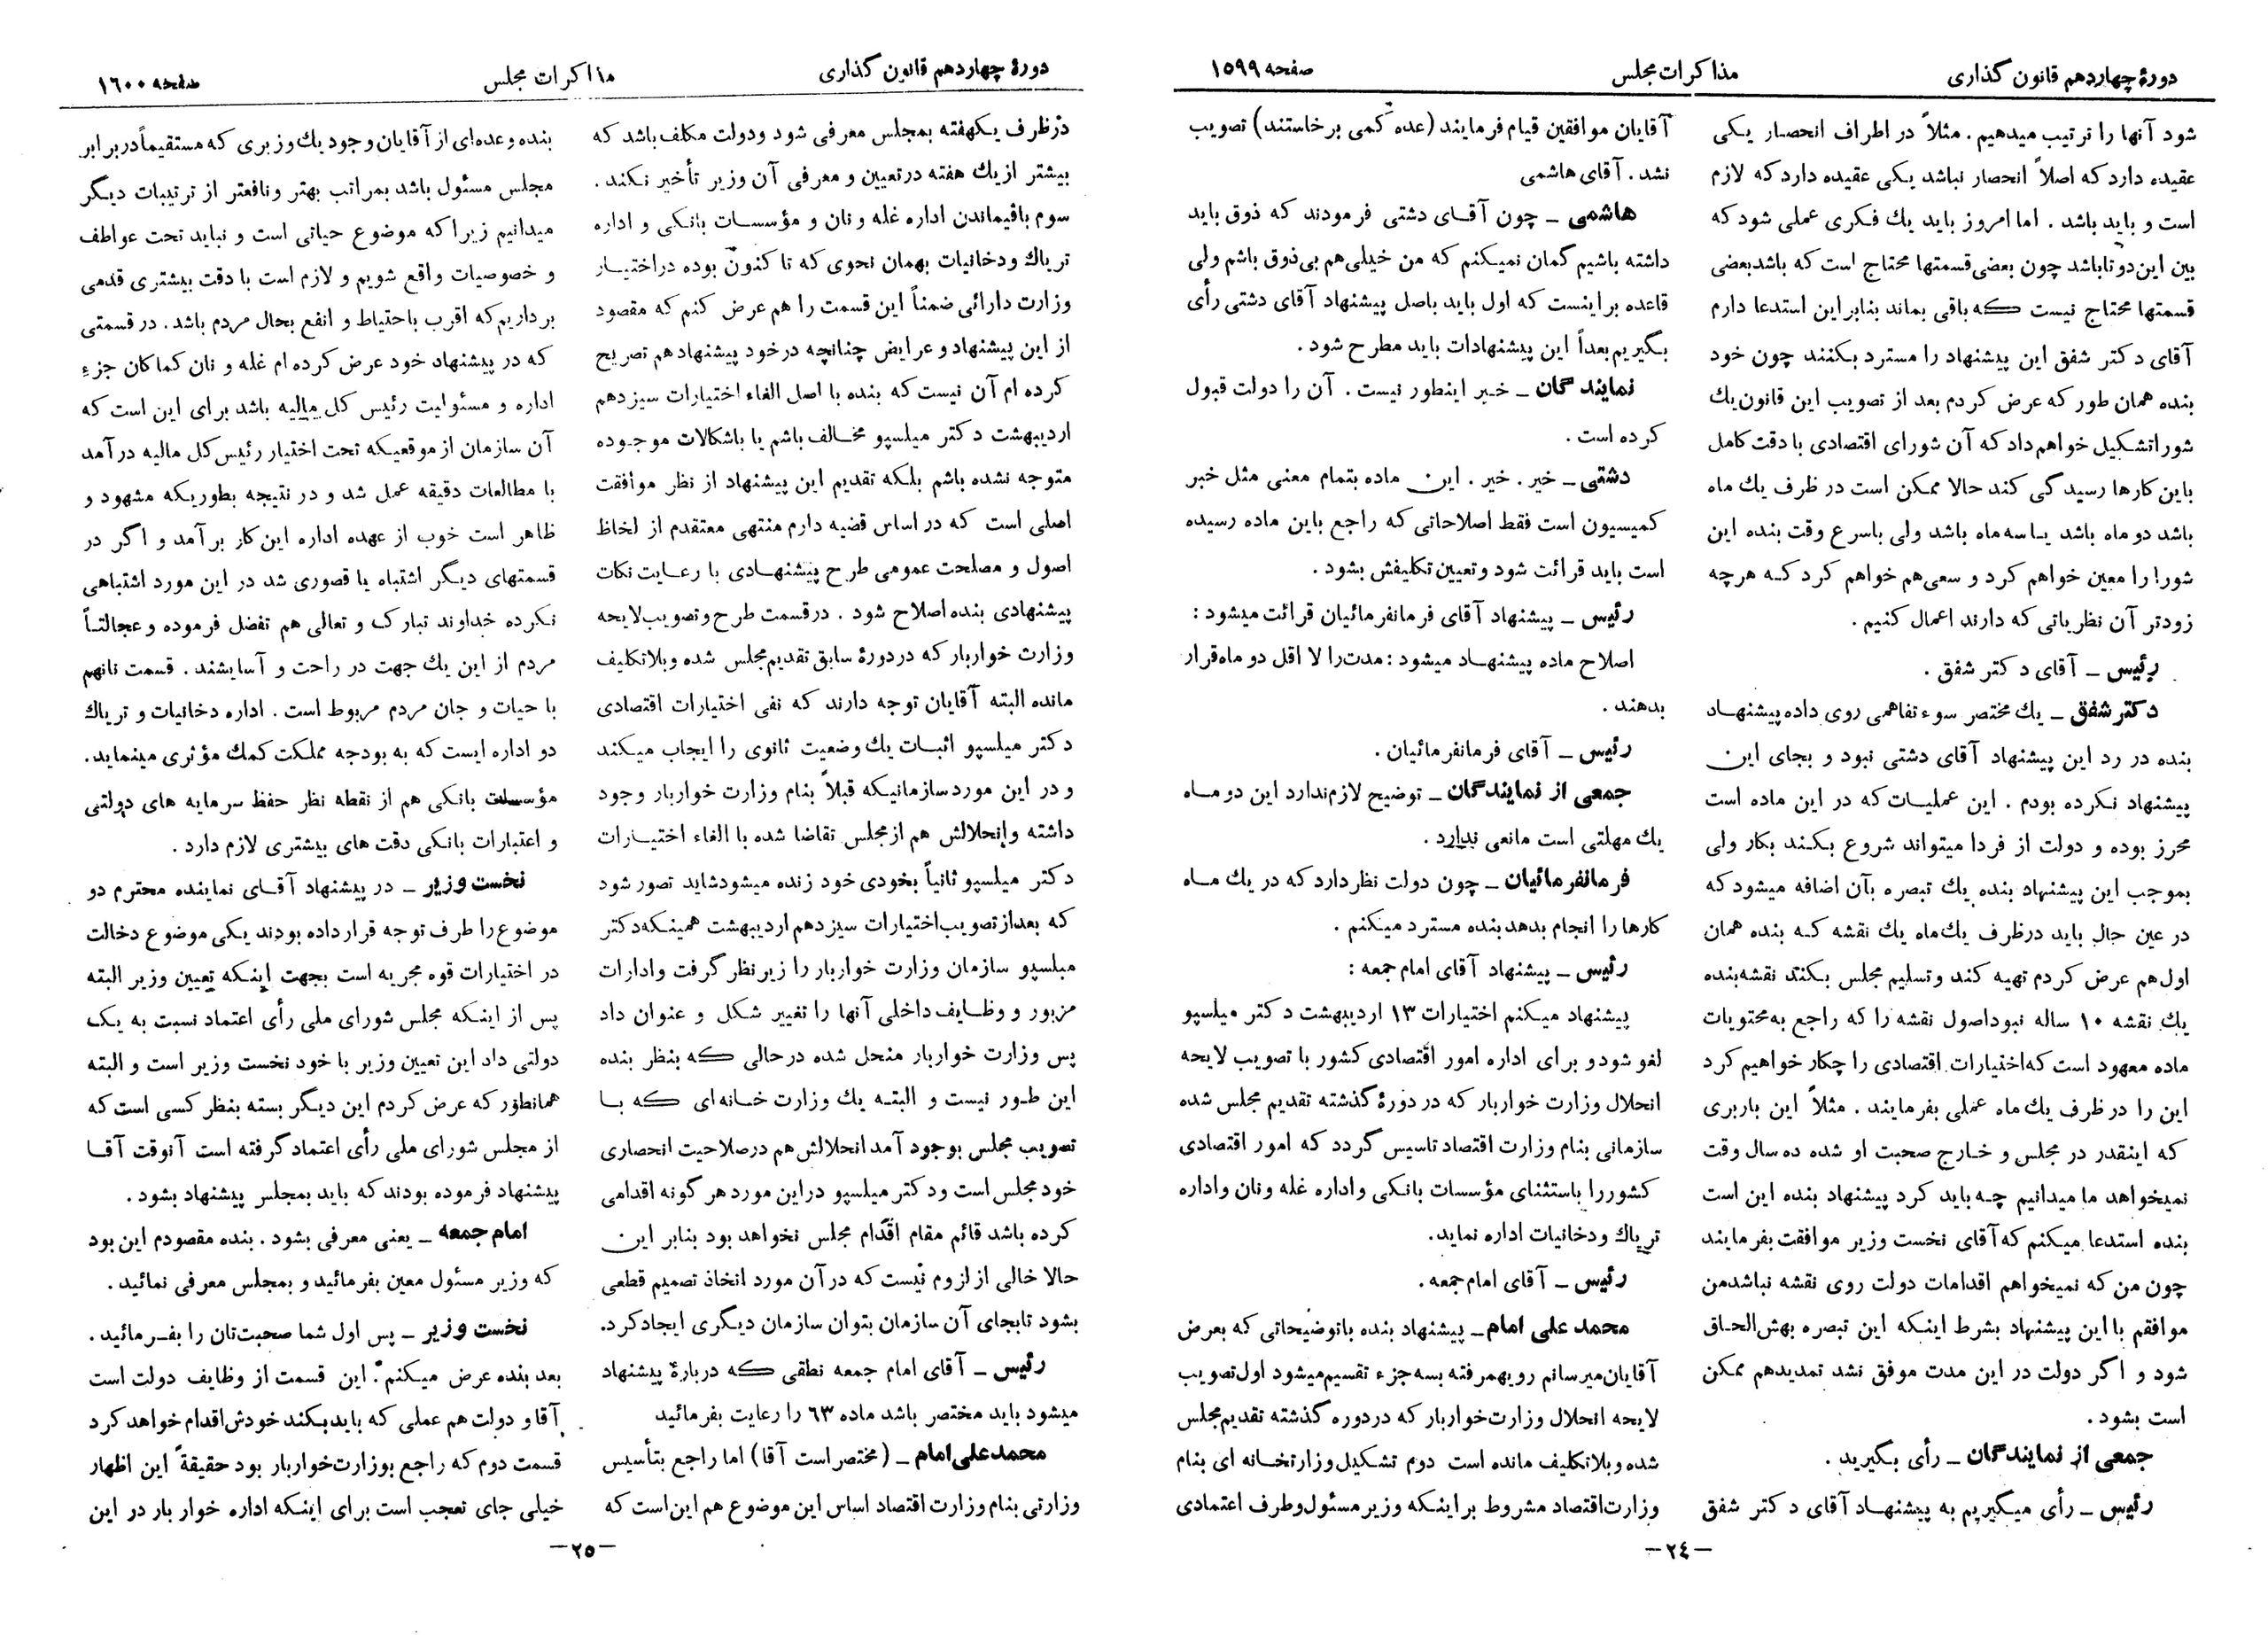 دورهٔ چهاردهم قانون گذاری
مذاکرات مجلس
صفحه ۱۵۹۹
شود آنها را ترتیب میدهیم . مثلاً در اطراف انحصار یکی
عقیده دارد که اصلاً انحصار نباشد یکی عقیده دارد که لازم
است و باید باشد . اما امروز باید یك فکری عملی شود که
بین این دو تا باشد چون بعضی قسمتها محتاج است که باشد بعضی
قسمتها محتاج نیست که باقی بماند بنابر این استدعا دارم
آقای دکتر شفق این پیشنهاد را مسترد بکنند چون خود
بنده همان طور که عرض کردم بعد از تصویب این قانون یك
شورا تشکیل خواهم داد که آن شورای اقتصادی با دقت کامل
باین کارها رسیدگی کند حالا ممکن است در ظرف یك ماه
باشد دو ماه باشد یا سه ماه باشد ولی باسرع وقت بنده این
شورا را معین خواهم کرد و سعی هم خواهم کرد که هر چه
زودتر آن نظریاتی که دارند اعمال کنیم .
رئیس ــ آقای دکتر شفق .
دکتر شفق ــ یك مختصر سوء تفاهمی روی داده پیشنهاد
بنده در رد این پیشنهاد آقای دشتی نبود و بجای این
پیشنهاد نکرده بودم . این عملیات که در این ماده است
محرز بوده و دولت از فردا میتواند شروع بکند بکار ولی
بموجب این پیشنهاد بنده یك تبصره بآن اضافه میشود که
در عین حال باید درظرف یك ماه یك نقشه که بنده همان
اول هم عرض کردم تهیه کند و تسلیم مجلس بکند نقشه بنده
یك نقشه ۱۰ ساله نبود اصول نقشه را که راجع به محتویات
ماده معهود است که اختیارات اقتصادی را چکار خواهیم کرد
این را در ظرف یك ماه عملی بفرمایند . مثلاً این باربری
که اینقدر در مجلس و خارج صحبت او شده ده سال وقت
نمیخواهد ما میدانیم چه باید کرد پیشنهاد بنده این است
بنده استدعا میکنم که آقای نخست وزیر موافقت بفرمایند
چون من که نمیخواهم اقدامات دولت روی نقشه نباشد من
موافقم با این پیشنهاد بشرط اینکه این تبصره بهش الحاق
شود و اگر دولت در این مدت موفق نشد تمدیدهم ممکن
است بشود .
جمعی از نمایندگان ــ رأی بگیرید .
رئیس ــ رأی میگیریم به پیشنهاد آقای دکتر شفق
آقایان موافقین قیام فرمایند (عده کمی برخاستند) تصویب
نشد . آقای هاشمی
هاشمی ــ چون آقای دشتی فرمودند که ذوق باید
داشته باشیم گمان نمیکنم که من خیلی هم بی ذوق باشم ولی
قاعده بر اینست که اول باید باصل پیشنهاد آقای دشتی رأی
بگیریم بعداً این پیشنهادات باید مطرح شود .
نمایندگان ــ خیر اینطور نیست . آن را دولت قبول
کرده است .
دشتی ــ خیر . خیر . این ماده بتمام معنی مثل خبر
کمیسیون است فقط اصلاحاتی که راجع باین ماده رسیده
است باید قرائت شود و تعیین تکلیفش بشود .
رئیس ــ پیشنهاد آقای فرمانفرمائیان قرائت میشود :
اصلاح ماده پیشنهاد میشود : مدت را لا اقل دو ماه قرار
بدهند .
رئیس ــ آقای فرمانفرمائیان .
جمعی از نمایندگان ــ توضیح لازم ندارد این دو ماه
یك مهلتی است مانعی ندارد .
فرمانفرمائیان ــ چون دولت نظر دارد که در یك ماه
کارها را انجام بدهد بنده مسترد میکنم .
رئیس ــ پیشنهاد آقای امام جمعه :
پیشنهاد میکنم اختیارات ۱۳ اردیبهشت دکتر میلسپو
لغو شود و برای اداره امور اقتصادی کشور با تصویب لایحه
انحلال وزارت خواربار که در دورهٔ گذشته تقدیم مجلس شده
سازمانی بنام وزارت اقتصاد تاسیس گردد که امور اقتصادی
کشور را باستثنای مؤسسات بانکی و اداره غله و نان و اداره
تریاك و دخانیات اداره نماید .
رئیس ــ آقای امام جمعه .
محمد علی امام ــ پیشنهاد بنده باتوضیحاتی که بعرض
آقایان میرسانم رویهمرفته بسه جزء تقسیم میشود اول تصویب
لایحه انحلال وزارت خواربار که در دوره گذشته تقدیم مجلس
شده و بلاتکلیف مانده است دوم تشکیل وزارتخانه ای بنام
وزارت اقتصاد مشروط بر اینکه وزیر مسئول و طرف اعتمادی
ــ ۲٤ ــ
دورهٔ چهاردهم قانون گذاری
مذاکرات مجلس
صفحه ۱٦۰۰
در ظرف یکهفته بمجلس معرفی شود و دولت مکلف باشد که
بیشتر از یك هفته در تعیین و معرفی آن وزیر تأخیر نکند .
سوم باقیماندن اداره غله و نان و مؤسسات بانکی و اداره
تریاك و دخانیات بهمان نحوی که تا کنون بوده در اختیار
وزارت دارائی ضمناً این قسمت را هم عرض کنم که مقصود
از این پیشنهاد و عرایض چنانچه در خود پیشنهاد هم تصریح
کرده ام آن نیست که بنده با اصل الغاء اختیارات سیزدهم
اردیبهشت دکتر میلسپو مخالف باشم یا باشکالات موجوده
متوجه نشده باشم بلکه تقدیم این پیشنهاد از نظر موافقت
اصلی است که در اساس قضیه دارم منتهی معتقدم از لحاظ
اصول و مصلحت عمومی طرح پیشنهادی با رعایت نکات
پیشنهادی بنده اصلاح شود . در قسمت طرح و تصویب لایحه
وزارت خواربار که در دورهٔ سابق تقدیم مجلس شده و بلاتکلیف
مانده البته آقایان توجه دارند که نفی اختیارات اقتصادی
دکتر میلسپو اثبات یك وضعیت ثانوی را ایجاب میکند
و در این مورد سازمانیکه قبلاً بنام وزارت خواربار وجود
داشته و انحلالش هم از مجلس تقاضا شده با الغاء اختیارات
دکتر میلسپو ثانیاً بخودی خود زنده میشود شاید تصور شود
که بعد از تصویب اختیارات سیزدهم اردیبهشت همینکه دکتر
میلسپو سازمان وزارت خواربار را زیر نظر گرفت و ادارات
مزبور و وظایف داخلی آنها را تغییر شکل و عنوان داد
پس وزارت خواربار منحل شده در حالی که بنظر بنده
این طور نیست و البته یك وزارت خانه ای که با
تصویب مجلس بوجود آمد انحلالش هم در صلاحیت انحصاری
خود مجلس است و دکتر میلسپو در این مورد هر گونه اقدامی
کرده باشد قائم مقام اقدام مجلس نخواهد بود بنابر این
حالا خالی از لزوم نیست که در آن مورد اتخاذ تصمیم قطعی
بشود تا بجای آن سازمان بتوان سازمان دیگری ایجاد کرد .
رئیس ــ آقای امام جمعه نطقی که دربارهٔ پیشنهاد
میشود باید مختصر باشد ماده ٦۳ را رعایت بفرمائید
محمد علی امام ــ (مختصر است آقا) اما راجع بتأسیس
وزارتی بنام وزارت اقتصاد اساس این موضوع هم این است که
بنده و عده ای از آقایان وجود یك وزیری که مستقیماً در برابر
مجلس مسئول باشد بمراتب بهتر و نافعتر از ترتیبات دیگر
میدانیم زیرا که موضوع حیاتی است و نباید تحت عواطف
و خصوصیات واقع شویم و لازم است با دقت بیشتری قدمی
برداریم که اقرب باحتیاط و انفع بحال مردم باشد . در قسمتی
که در پیشنهاد خود عرض کرده ام غله و نان کماکان جزء
اداره و مسئولیت رئیس کل مالیه باشد برای این است که
آن سازمان از موقعیکه تحت اختیار رئیس کل مالیه در آمد
با مطالعات دقیقه عمل شد و در نتیجه بطوریکه مشهود و
ظاهر است خوب از عهده اداره این کار بر آمد و اگر در
قسمتهای دیگر اشتباه یا قصوری شد در این مورد اشتباهی
نکرده خداوند تبارك و تعالی هم تفضل فرموده و عجالتاً
مردم از این یك جهت در راحت و آسایشند . قسمت نانهم
با حیات و جان مردم مربوط است . اداره دخانیات و تریاك
دو اداره ایست که به بودجه مملکت کمك مؤثری مینماید .
مؤسسات بانکی هم از نقطه نظر حفظ سرمایه های دولتی
و اعتبارات بانکی دقت های بیشتری لازم دارد .
نخست وزیر ــ در پیشنهاد آقای نماینده محترم دو
موضوع را طرف توجه قرار داده بودند یکی موضوع دخالت
در اختیارات قوه مجریه است بجهت اینکه تعیین وزیر البته
پس از اینکه مجلس شورای ملی رأی اعتماد نسبت به یک
دولتی داد این تعیین وزیر با خود نخست وزیر است و البته
همانطور که عرض کردم این دیگر بسته بنظر کسی است که
از مجلس شورای ملی رأی اعتماد گرفته است آنوقت آقا
پیشنهاد فرموده بودند که باید بمجلس پیشنهاد بشود .
امام جمعه ــ یعنی معرفی بشود . بنده مقصودم این بود
که وزیر مسئول معین بفرمائید و بمجلس معرفی نمائید .
نخست وزیر ــ پس اول شما صحبت تان را بفرمائید .
بعد بنده عرض میکنم . این قسمت از وظایف دولت است
آقا و دولت هم عملی که باید بکند خودش اقدام خواهد کرد
قسمت دوم که راجع بوزارت خواربار بود حقیقةً این اظهار
خیلی جای تعجب است برای اینکه اداره خوار بار در این
ــ ۲٥ ــ